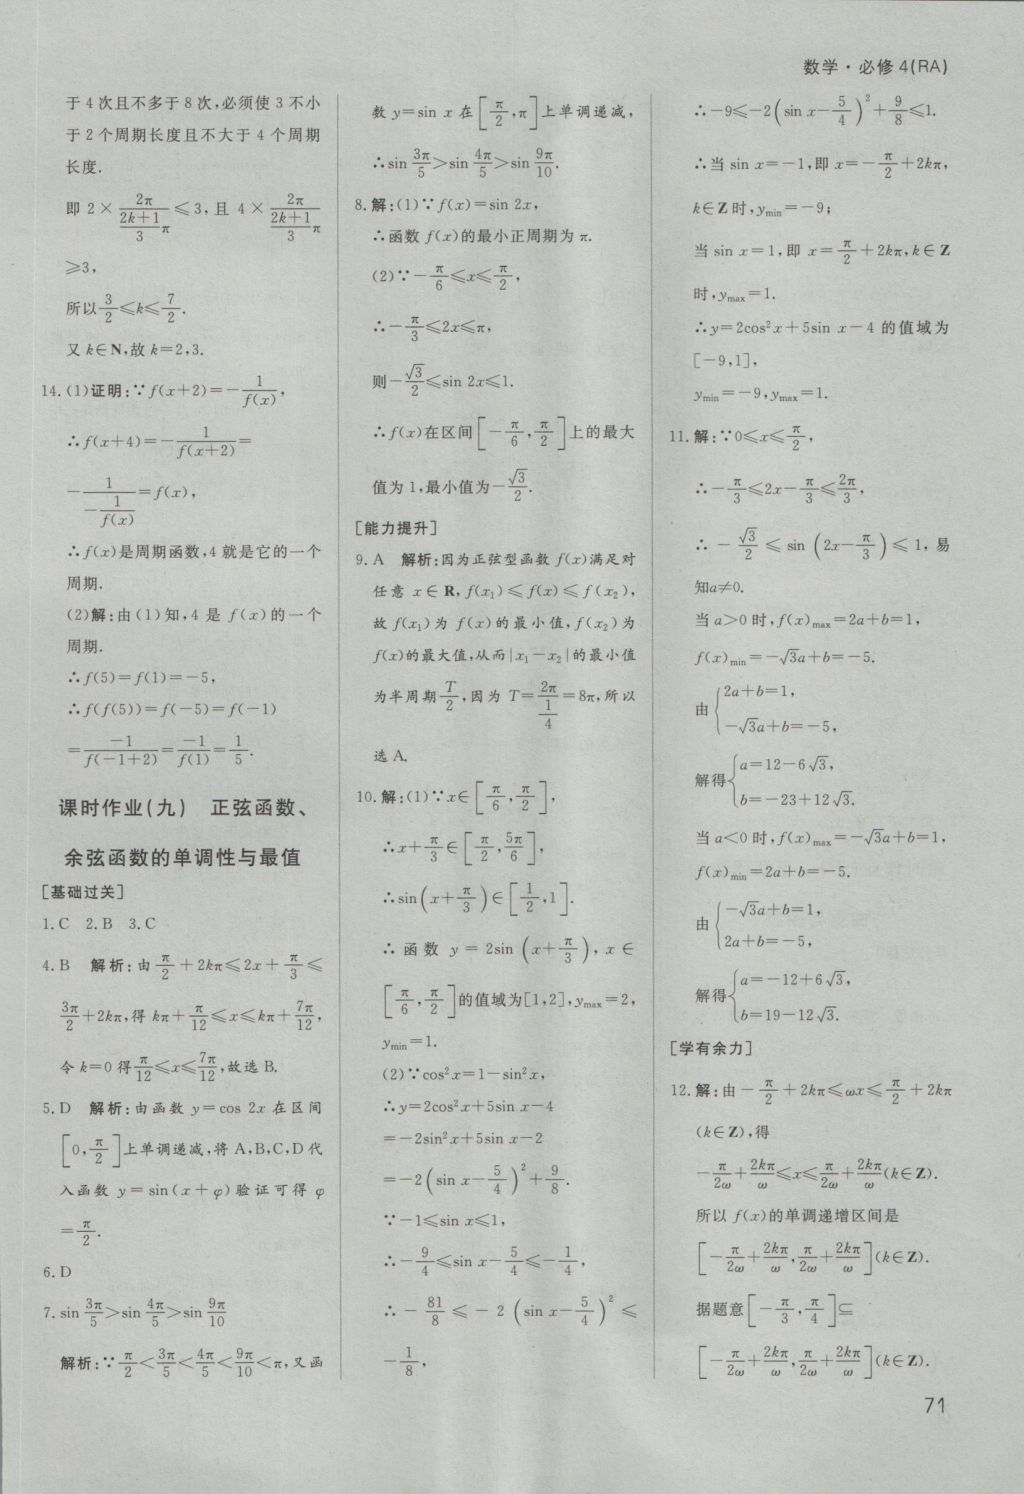 数学·必修4(RA)
于4次且不多于8次,必须使3不小
于2个周期长度且不大于4个周期
长度.
即 2×\frac{2π}{\frac{2k+1}{3}π}≤3,且 4×\frac{2π}{\frac{2k+1}{3}π}
≥3,
所以\frac{3}{2}≤k≤\frac{7}{2}.
又k∈N,故k=2,3.
14.(1)证明:∵f(x+2)=-\frac{1}{f(x)},
∴f(x+4)=-\frac{1}{f(x+2)}=
-\frac{1}{-\frac{1}{f(x)}}=f(x),
∴f(x)是周期函数,4就是它的一个
周期.
(2)解:由(1)知,4是f(x)的一个
周期.
∴f(5)=f(1)=-5,
∴f(f(5))=f(-5)=f(-1)
=\frac{-1}{f(-1+2)}=\frac{-1}{f(1)}=\frac{1}{5}.
课时作业(九) 正弦函数、
余弦函数的单调性与最值
[基础过关]
1.C 2.B 3.C
4.B 解析:由\frac{π}{2}+2kπ≤2x+\frac{π}{3}≤
\frac{3π}{2}+2kπ,得kπ+\frac{π}{12}≤x≤kπ+\frac{7π}{12},
令k=0得\frac{π}{12}≤x≤\frac{7π}{12},故选B.
5.D 解析:由函数y=cos 2x在区间
[0,\frac{π}{2}]上单调递减,将A,B,C,D代
入函数y=sin(x+φ)验证可得φ
=\frac{π}{2}.
6.D
7.sin\frac{3π}{5}>sin\frac{4π}{5}>sin\frac{9π}{10}
解析:∵\frac{π}{2}<\frac{3π}{5}<\frac{4π}{5}<\frac{9π}{10}<π,又函
数y=sin x在[\frac{π}{2},π]上单调递减,
∴sin\frac{3π}{5}>sin\frac{4π}{5}>sin\frac{9π}{10}.
8.解:(1)∵f(x)=sin 2x,
∴函数f(x)的最小正周期为π.
(2)∵-\frac{π}{6}≤x≤\frac{π}{2},
∴-\frac{π}{3}≤2x≤π,
则-\frac{√3}{2}≤sin 2x≤1.
∴f(x)在区间[-\frac{π}{6},\frac{π}{2}]上的最大
值为1,最小值为-\frac{√3}{2}.
[能力提升]
9.A 解析:因为正弦型函数f(x)满足对
任意x∈R,f(x₁)≤f(x)≤f(x₂),
故f(x₁)为f(x)的最小值,f(x₂)为
f(x)的最大值,从而|x₁-x₂|的最小值
为半周期\frac{T}{2},因为T=\frac{2π}{\frac{1}{4}}=8π,所以
选A.
10.解:(1)∵x∈[\frac{π}{6},\frac{π}{2}],
∴x+\frac{π}{3}∈[\frac{π}{2},\frac{5π}{6}],
∴sin(x+\frac{π}{3})∈[\frac{1}{2},1].
∴函数y=2sin(x+\frac{π}{3}),x∈
[\frac{π}{6},\frac{π}{2}]的值域为[1,2],y_{max}=2,
y_{min}=1.
(2)∵cos²x=1-sin²x,
∴y=2cos²x+5sin x-4
=-2sin²x+5sin x-2
=-2(sin x-\frac{5}{4})²+\frac{9}{8}.
∵-1≤sin x≤1,
∴-\frac{9}{4}≤sin x-\frac{5}{4}≤-\frac{1}{4},
∴-\frac{81}{8}≤-2(sin x-\frac{5}{4})²≤
-\frac{1}{8},
∴-9≤-2(sin x-\frac{5}{4})²+\frac{9}{8}≤1.
∴当sin x=-1,即x=-\frac{π}{2}+2kπ,
k∈Z时,y_{min}=-9;
当sin x=1,即x=\frac{π}{2}+2kπ,k∈Z
时,y_{max}=1.
∴y=2cos²x+5sin x-4的值域为
[-9,1],
y_{min}=-9,y_{max}=1.
11.解:∵0≤x≤\frac{π}{2},
∴-\frac{π}{3}≤2x-\frac{π}{3}≤\frac{2π}{3},
∴-\frac{√3}{2}≤sin(2x-\frac{π}{3})≤1,易
知a≠0.
当a>0时,f(x)_{max}=2a+b=1,
f(x)_{min}=-√3a+b=-5.
由{2a+b=1,
-√3a+b=-5,
解得{a=12-6√3,
b=-23+12√3.
当a<0时,f(x)_{max}=-√3a+b=1,
f(x)_{min}=2a+b=-5.
由{-√3a+b=1,
2a+b=-5,
解得{a=-12+6√3,
b=19-12√3.
[学有余力]
12.解:由-\frac{π}{2}+2kπ≤ωx≤\frac{π}{2}+2kπ
(k∈Z),得
-\frac{π}{2ω}+\frac{2kπ}{ω}≤x≤\frac{π}{2ω}+\frac{2kπ}{ω}(k∈Z).
所以f(x)的单调递增区间是
[-\frac{π}{2ω}+\frac{2kπ}{ω},\frac{π}{2ω}+\frac{2kπ}{ω}](k∈Z).
据题意[-\frac{π}{3},\frac{π}{4}]⊆
[-\frac{π}{2ω}+\frac{2kπ}{ω},\frac{π}{2ω}+\frac{2kπ}{ω}](k∈Z).
71